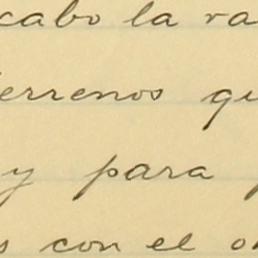 cabo la va
terrenos qu
y para
s con el o